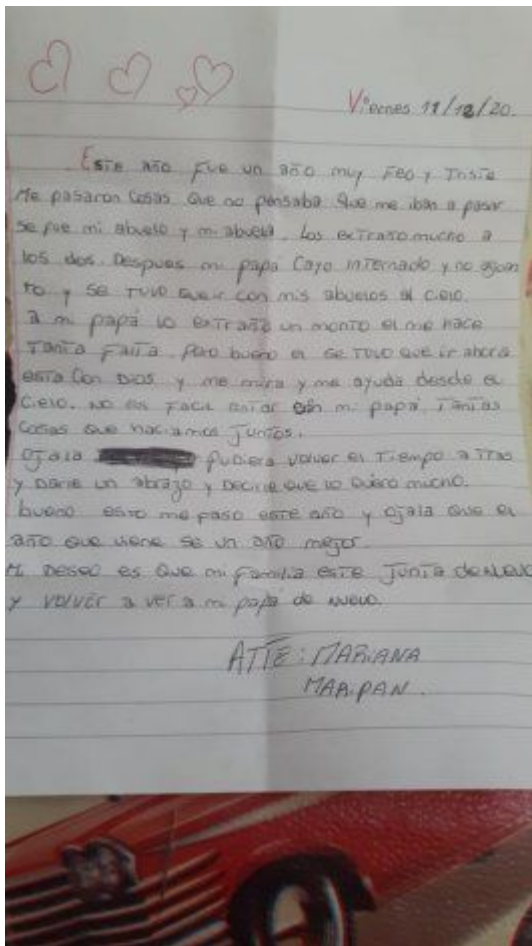 Viernes 11/12/20.
Este año fue un año muy feo y triste
Me pasaron cosas que no pensaba que me iban a pasar
se fue mi abuelo y mi abuela. Los extraño mucho a
los dos. Despues mi papá cayo internado y no aguan
to y se tuvo que ir con mis abuelos al cielo.
a mi papá lo extraño un monto el me hace
tanta falta. Pero bueno el se tuvo que ir ahora
esta con Dios y me mira y me ayuda desde el
cielo. No es facil estar sin mi papá. Tantas
cosas que haciamos juntos.
Ojala pudiera volver el tiempo a tras
y darle un abrazo y decirle que lo quiero mucho.
bueno esto me paso este año y ojala que el
año que viene se un año mejor.
Mi deseo es que mi familia este junta de nuevo
y volver a ver a mi papá de nuevo.
ATTE: MARIANA
MARIPAN.